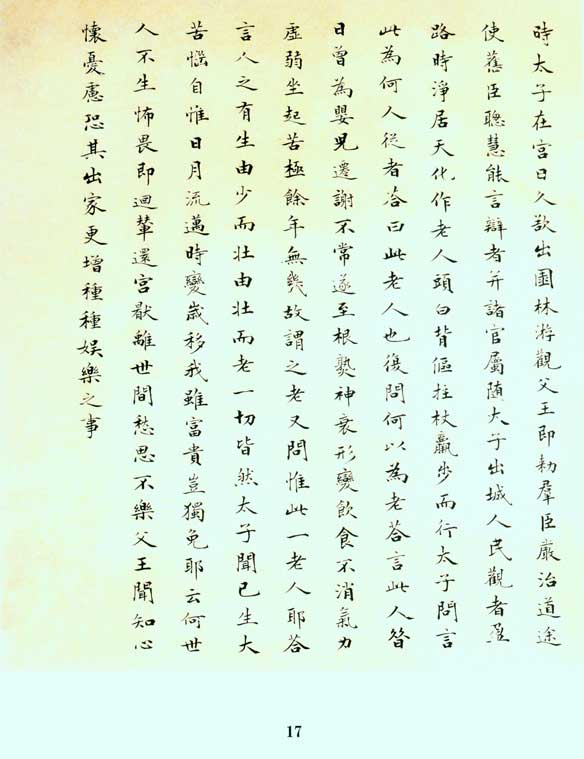 時太子在宮日久欲出園林游觀父王即勅羣臣嚴治道途
使舊臣聰慧能言辯者并諸官屬随太子出城人民觀者盈
路時淨居天化作老人頭白背傴拄杖羸步而行太子問言
此為何人從者荅曰此老人也復問何以為老荅言此人昝
日曾為嬰兒遷謝不常遂至根熟神衰形變飲食不消氣力
虛弱坐起苦極餘年無幾故謂之老又問惟此一老人耶荅
言人之有生由少而壯由壯而老一切皆然太子聞已生大
苦惱自惟日月流邁時變歲移我雖富貴豈獨免耶云何世
人不生怖畏即迴輦還宮猒離世間愁思不樂父王聞知心
懷憂慮恐其出家更增種種娱樂之事
17